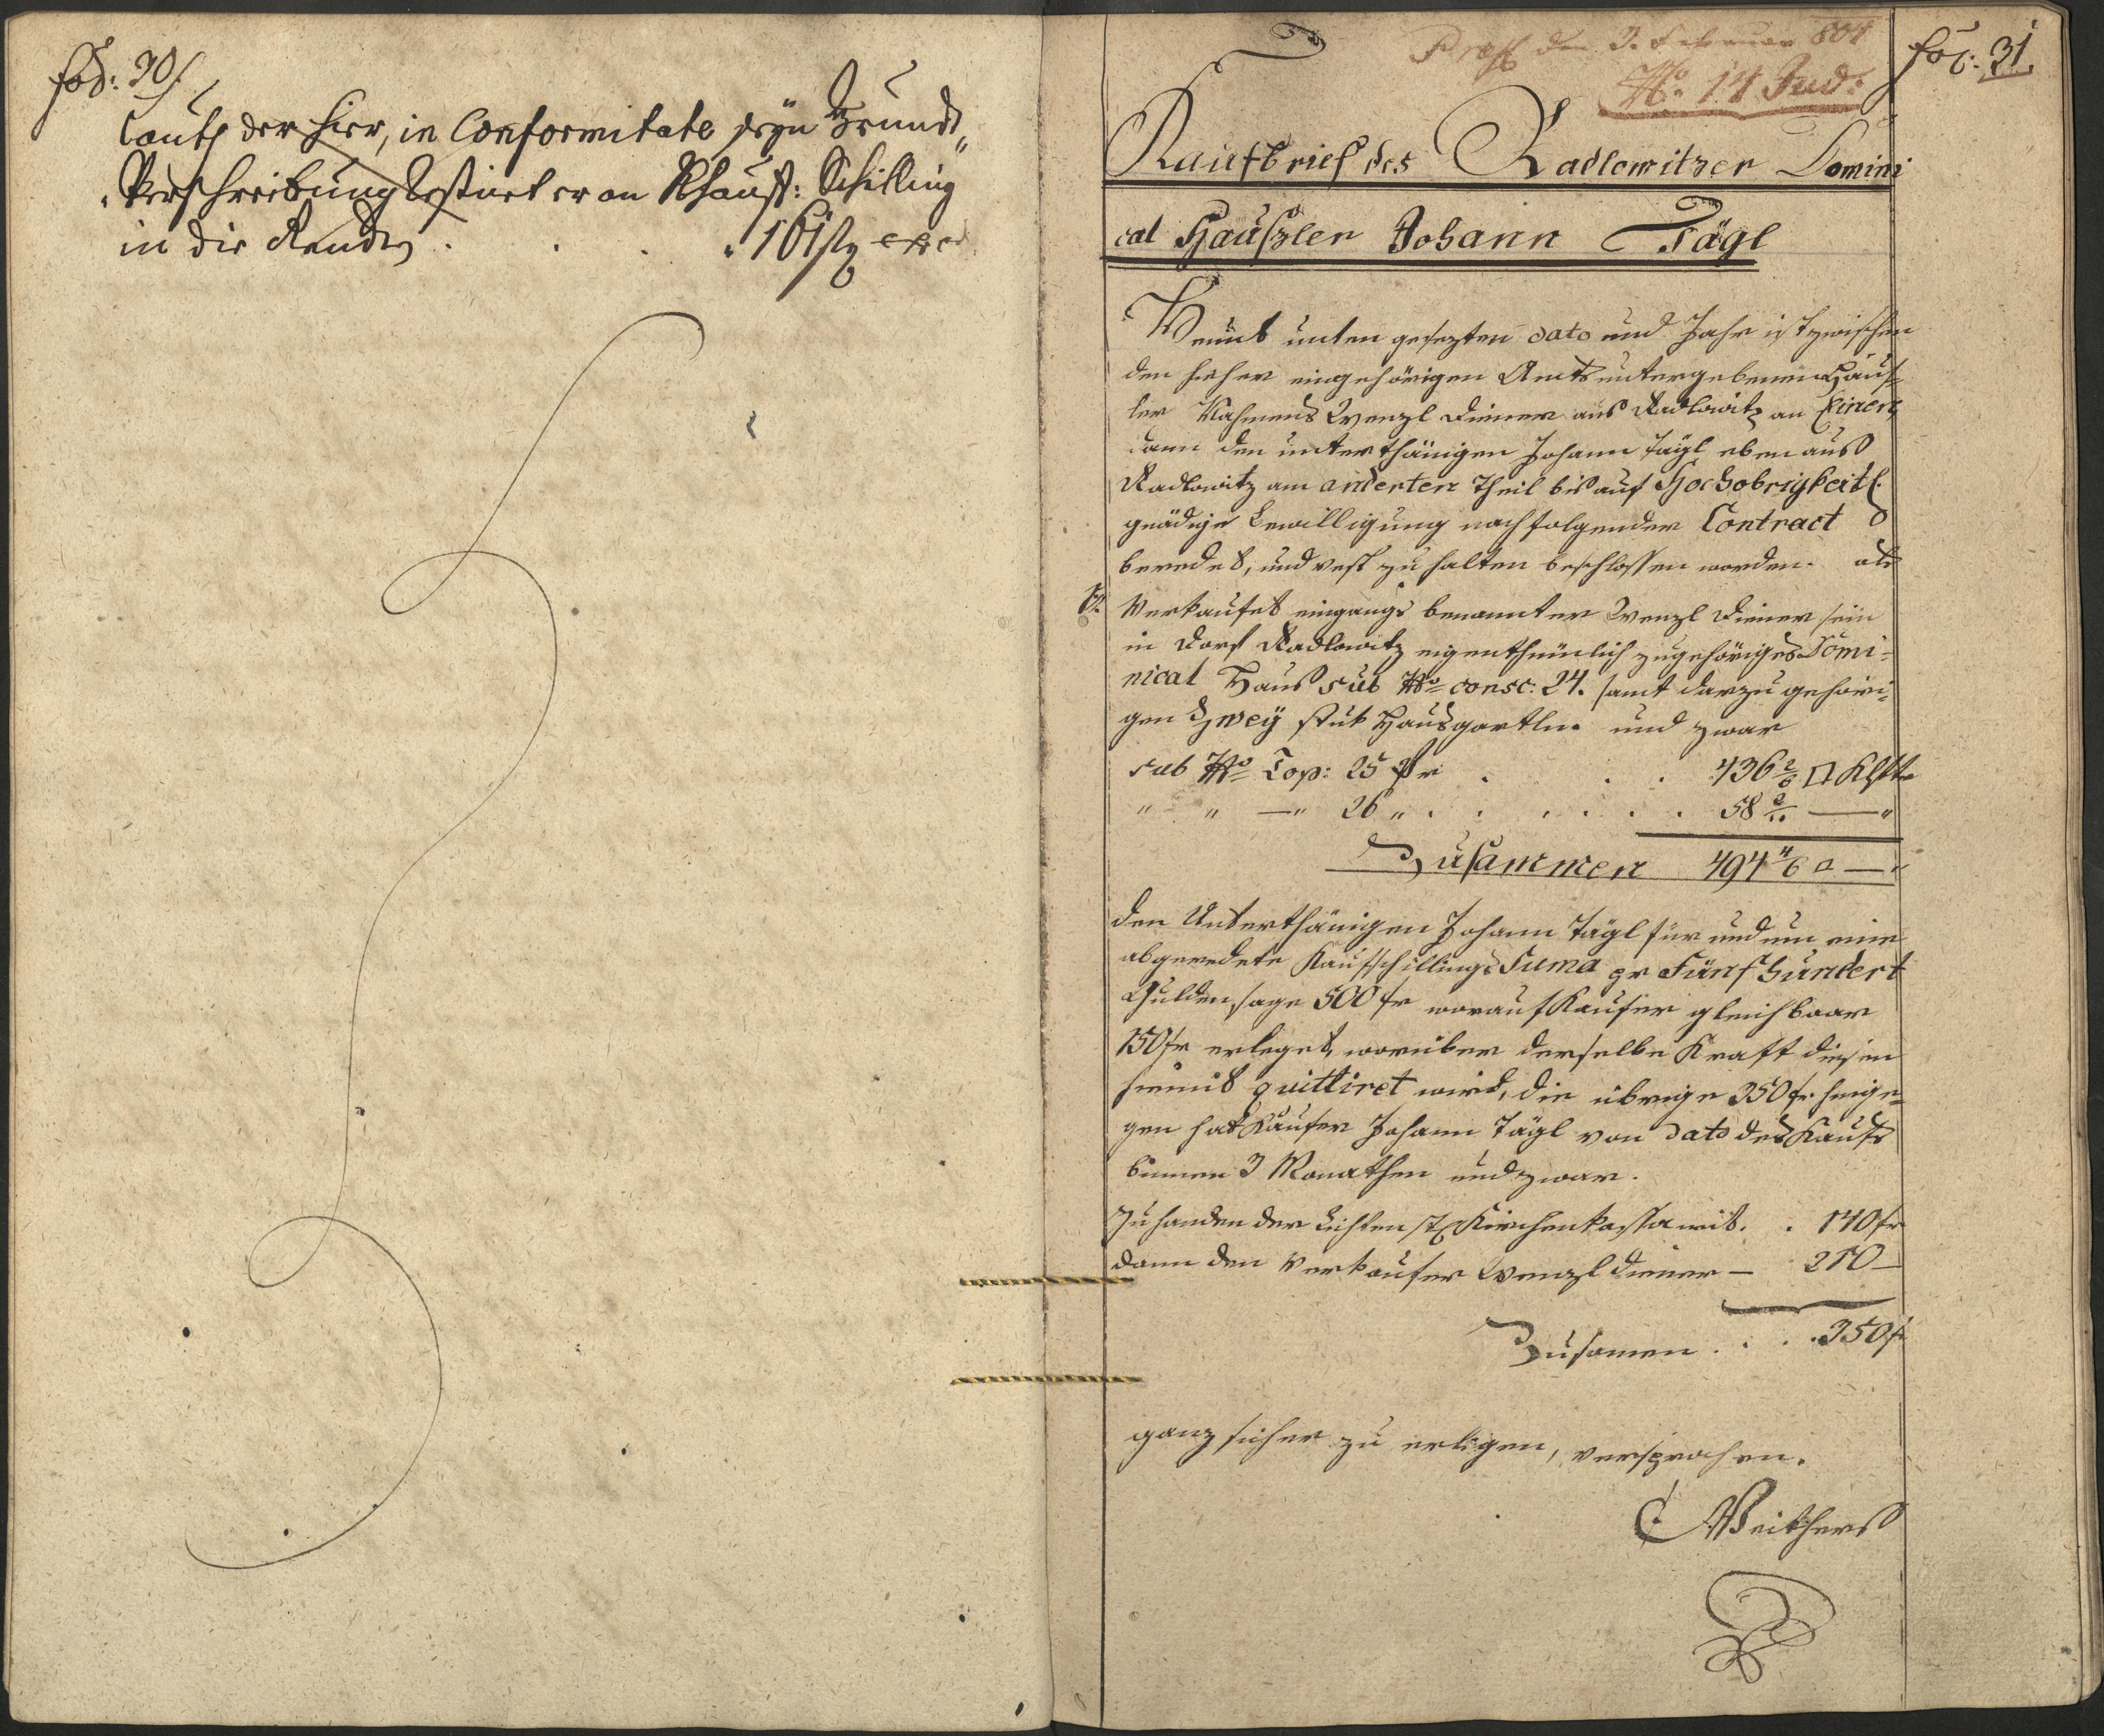 fol: 30
Laut der hier, in Conformitate seyn Grund„
„Verschreibung Restiret er an Khauff: Schilling
in die Renden . . . . 161 f
Præs den 3. Februar 804
No. 14 Jud:
fol: 31.
Kaufbrief des Radlowitzer Domini
cal Häußler Johann Tägl
Heunt unten gesezten dato und Jahr ist zwischen
den hieher eingehörigen Amtsuntergebenen Häus-
ler Nahmens Wenzl Diener aus Radlowitz an Einen,
dann den unterthänigen Johann Tägl eben aus
Radlowitz am anderten Theil bis auf Hochobrigkeitl.
gnädige Bewilligung nachfolgender Contract
beredet, und vest zu halten beschlossen worden. als
1o. Verkaufet eingangs benannter Wenzl Diener sein
in Dorf Radlowitz eigenthümlich zugehöriges Domi-
nical Haus sub No consc: 24. samt darzu gehöri-
gen Zwey stuk Hausgartln. und zwar
sub No Top: 25 pr . . . 436 2/6 □ Klftr
" " —" 26 " . . . . . . 58 2/6 —"
Zusammen 494 4/6 □ —"
den Unterthänigen Johann Tägl für und um eine
abgeredete Kaufschillings Suma pr Fünfhundert
Gulden, sage 500 fr worauf Kaufer gleich baar
150 fr erleget, worüber derselbe Kraft diesen
hiemit quittiret wird, die übrige 350 fr hinge-
gen hat Käufer Johann Tägl von dato des Kaufs
binnen 3 Monathen und zwar.
Zuhanden der Kirchenkassa mit. . 140 fr
dann den Verkaufer Wenzl Diener — 210 —
Zusamen . . . 350 f
ganz sicher zu erlegen, versprochen.